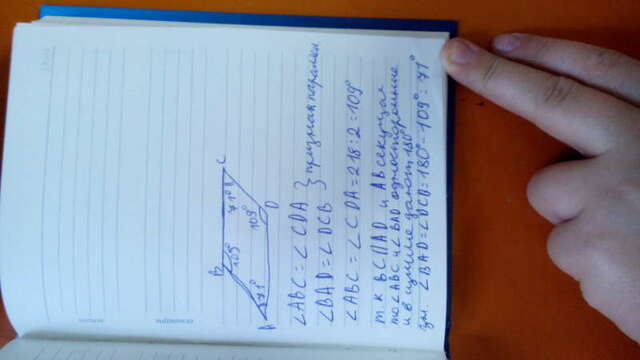 B
C
109°
71°
71°
109°
A
D
∠ABC = ∠CDA } признак паралел
∠BAD = ∠DCB
∠ABC = ∠CDA = 218:2 = 109°
т.к BC||AD и AB секущая
то ∠ABC и ∠BAD односторонние
и в сумме дают 180°
∠BAD = ∠DCB = 180° - 109° = 71°